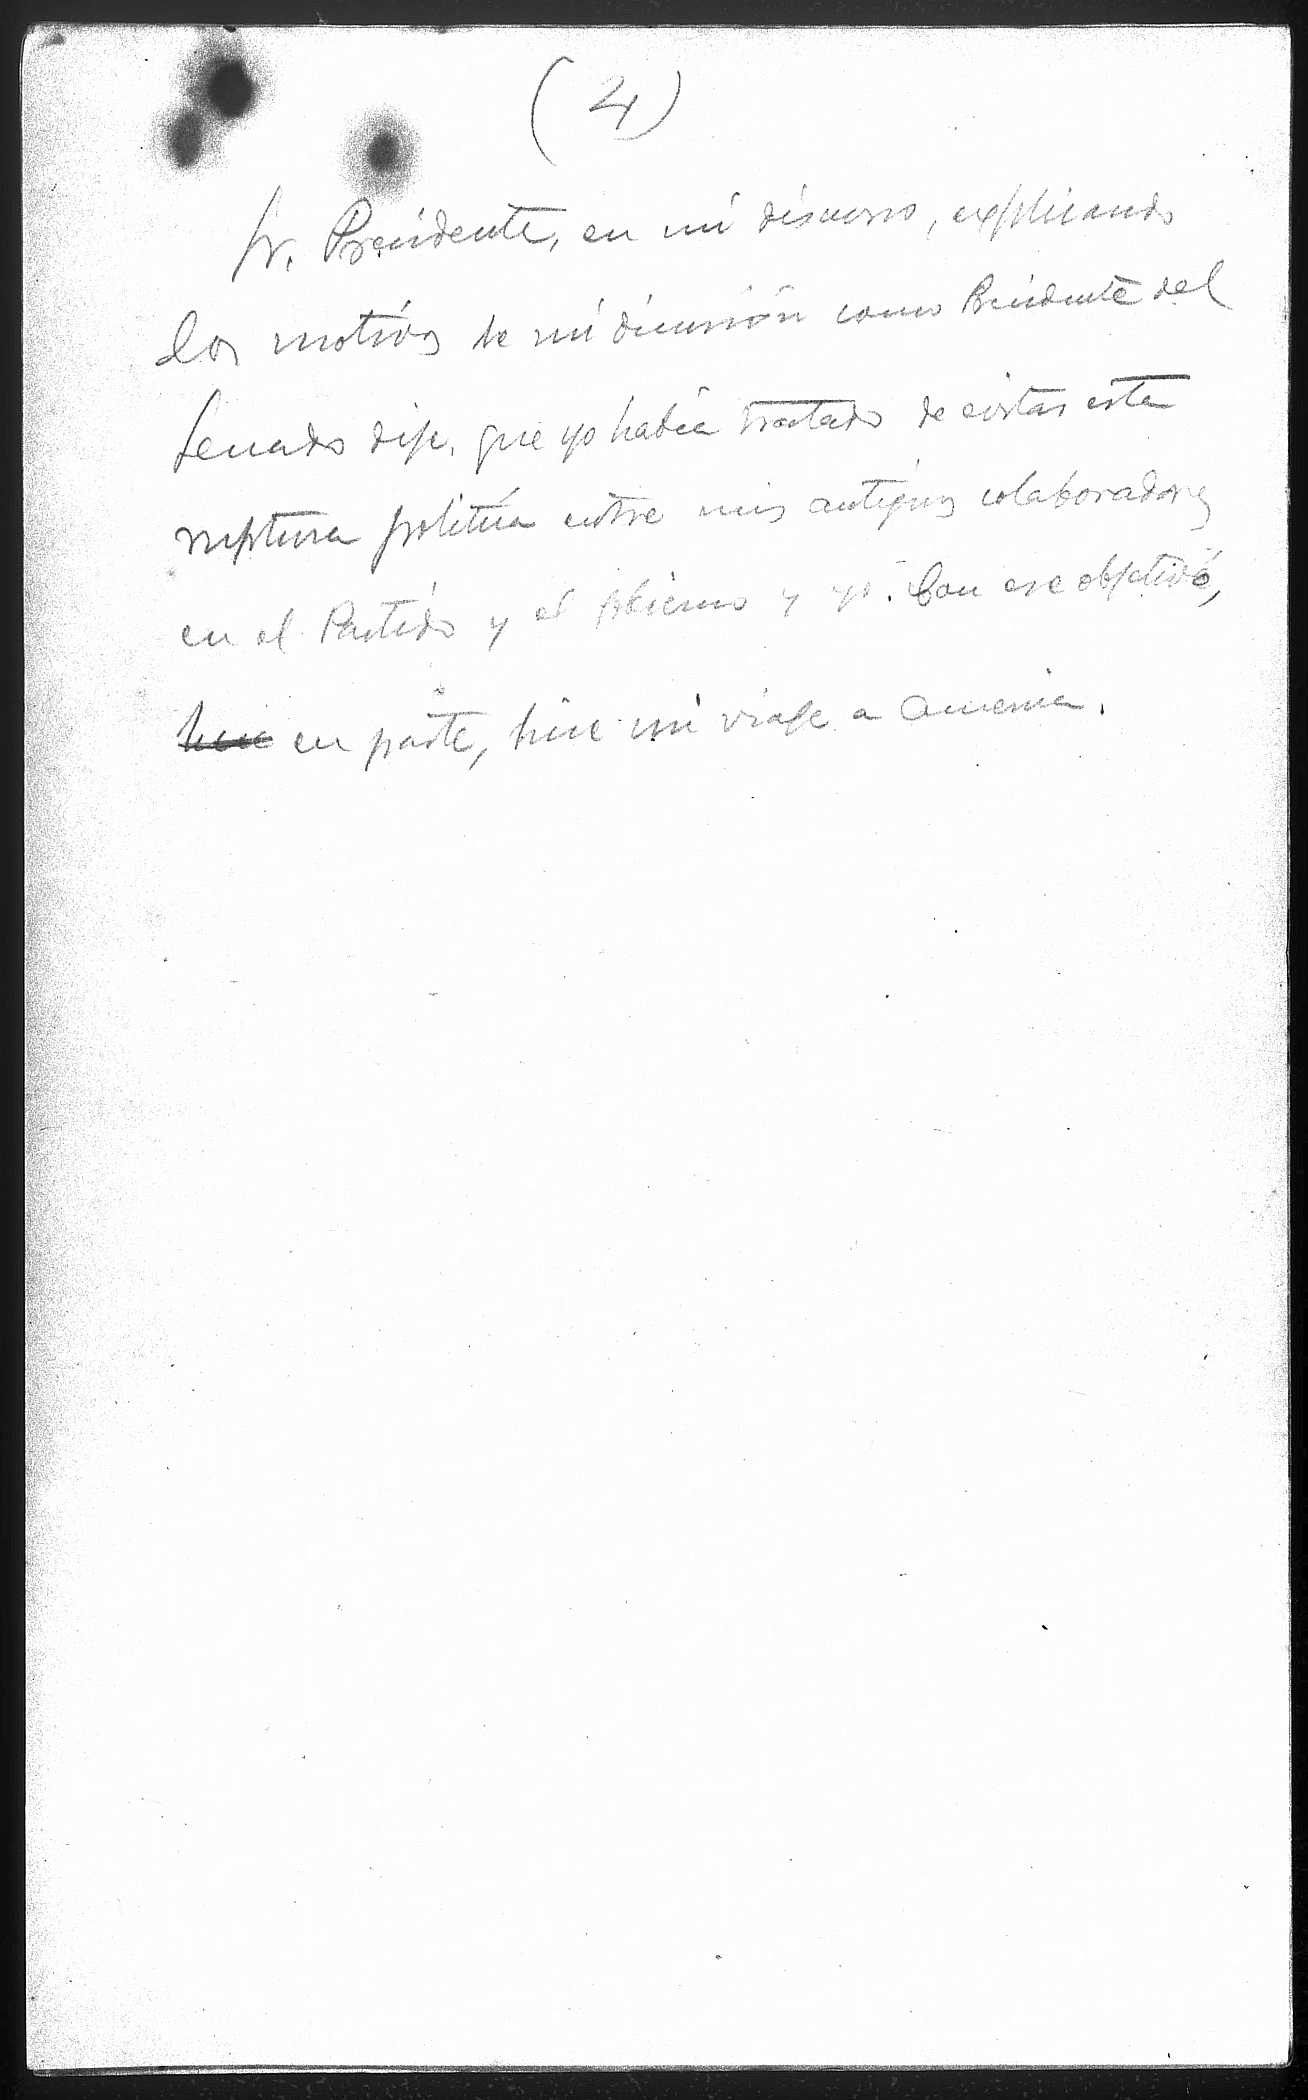 (4)
Sr. Presidente, en mi discurso, explicando
los motivos de mi dimisión como Presidente del
Senado dije, que yo había tratado de evitar esta
ruptura política entre mis antiguos colaboradores
en el Partido y el Gobierno y yo. Con ese objetivo,
hice en parte, hice mi viaje a America.